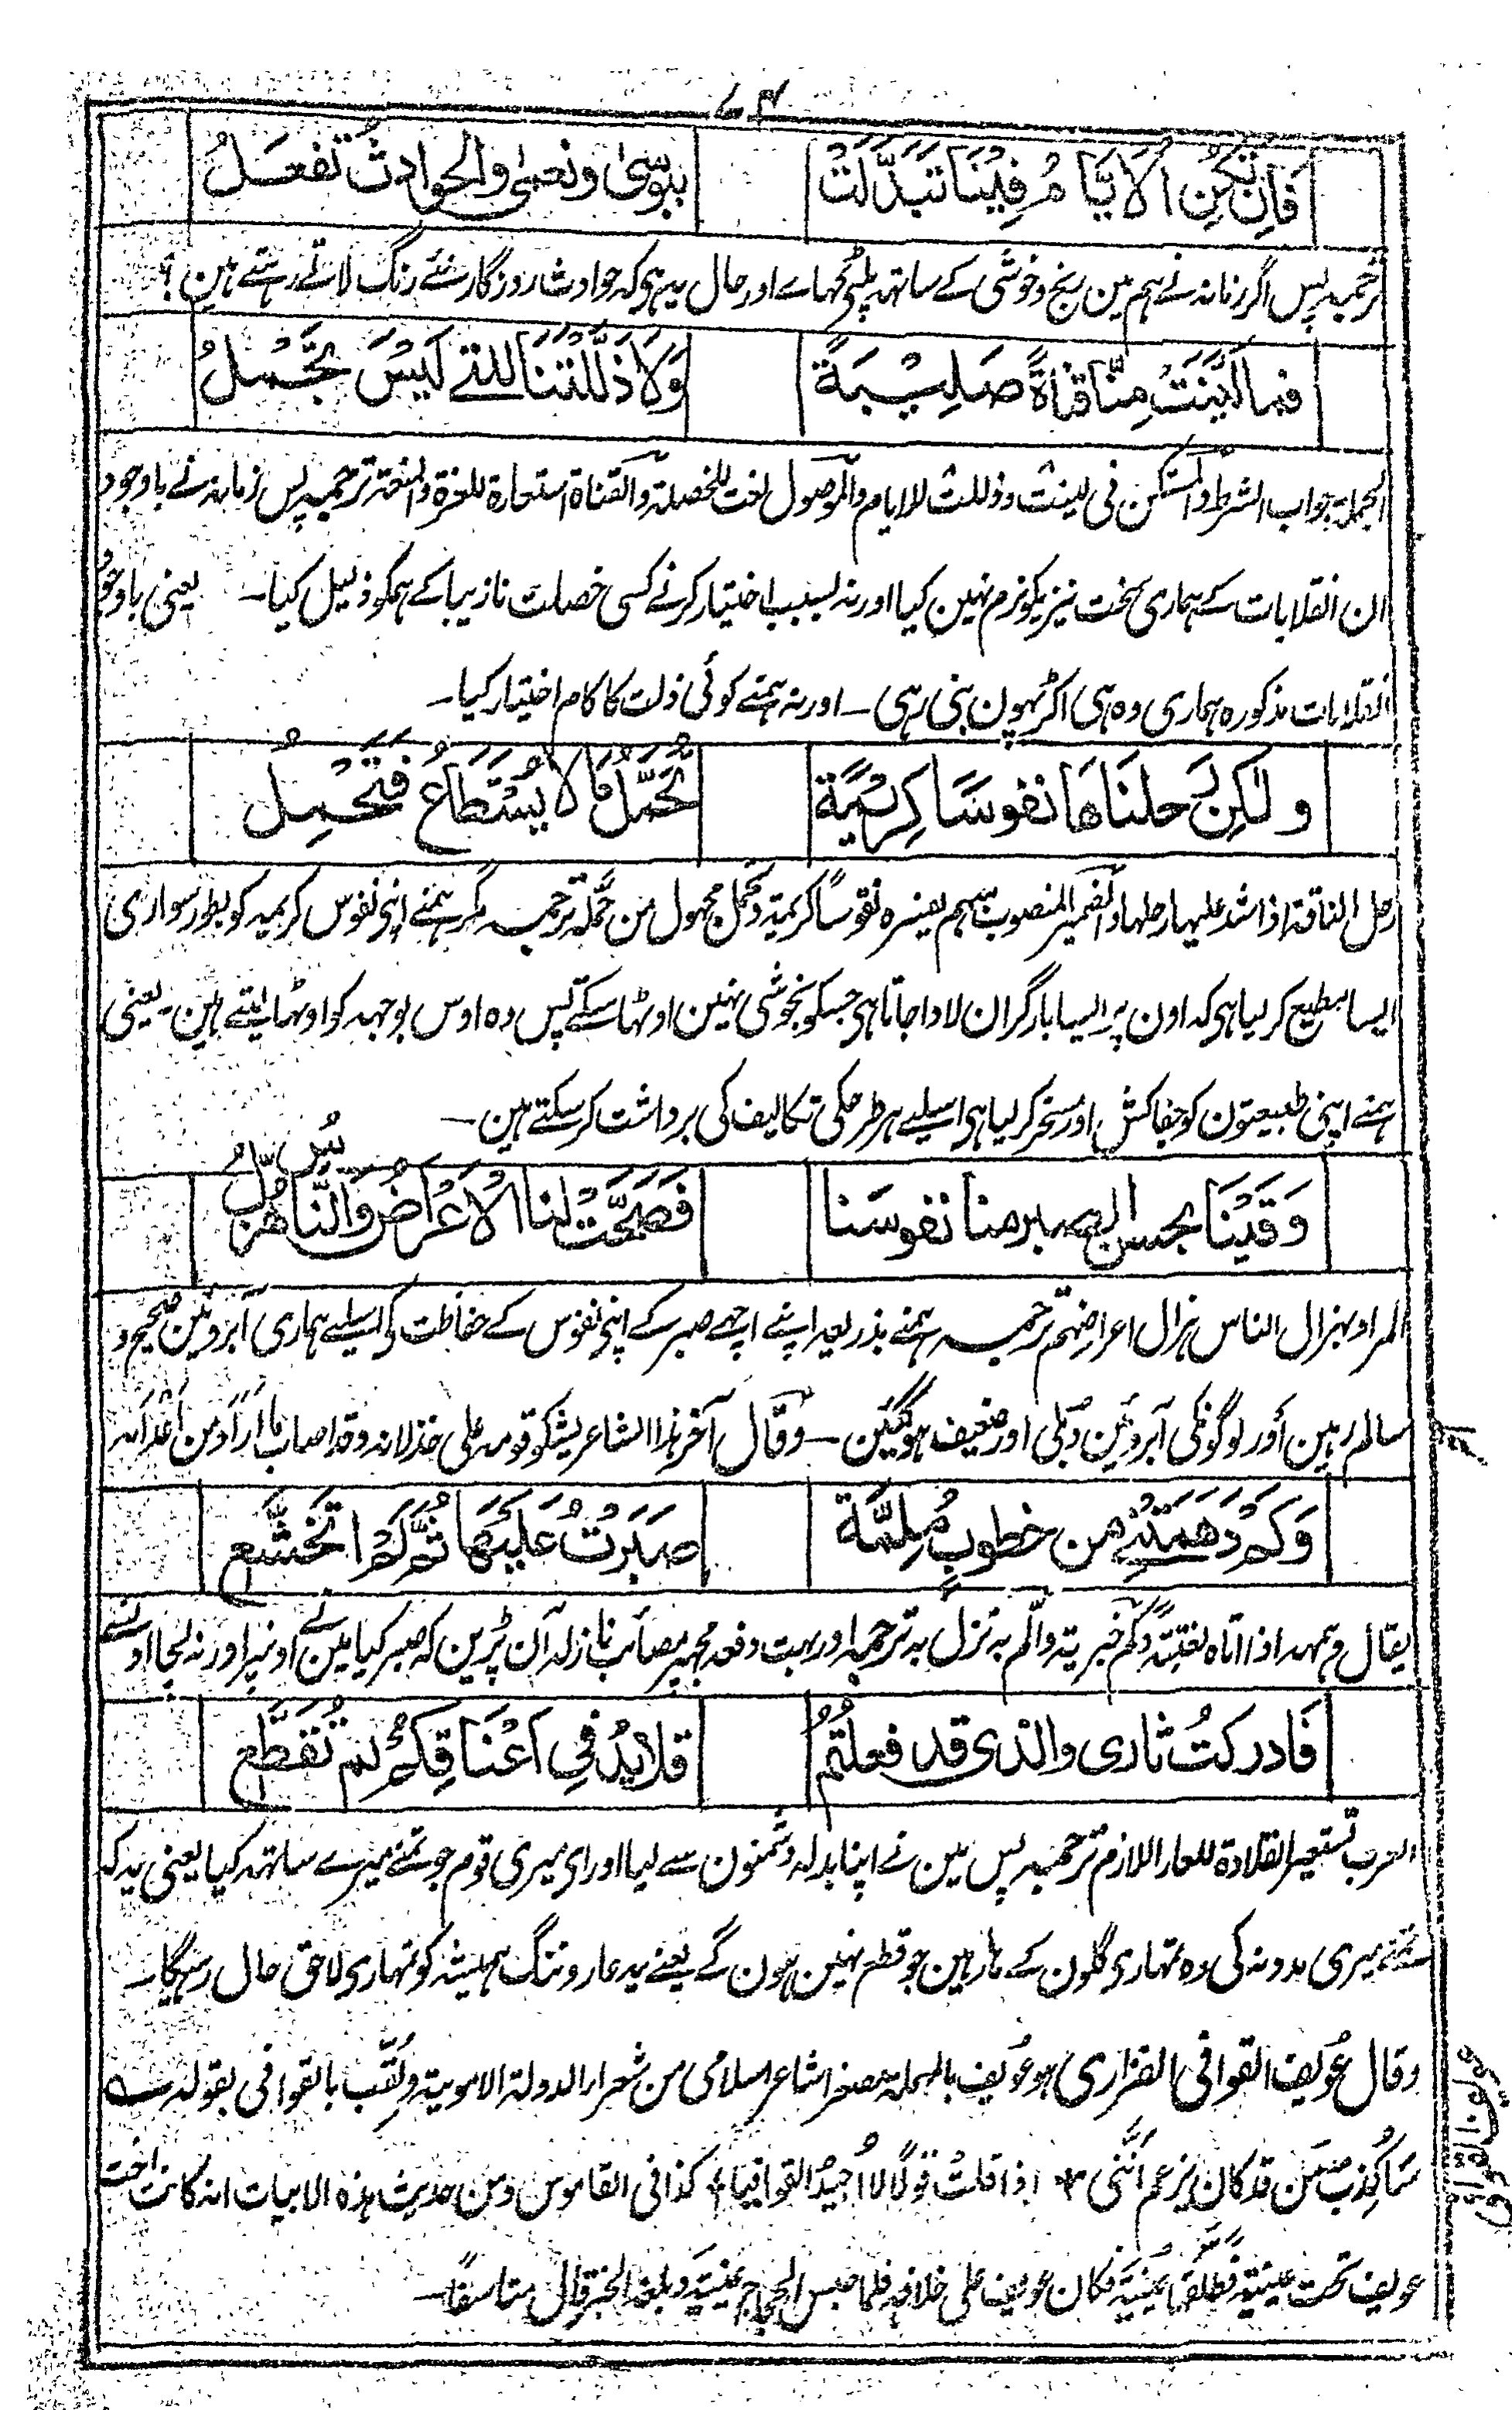 ۷۴
فَاِنْ تَكُنِ الْاَيَّامُ فِيْنَا تَبَدَّلَتْ ببوسى ونعمى والحوادث تَفعَلُ
ترجمہ پس اگر زمانہ نے ہم مین رنج و خوشی کے ساتھہ پلٹی کھاے اور حال یہ ہی کہ حوادث روزگار نئے رنگ لاتے رہتے ہین ؛
فما لَيَّنَتْ مِنّا قناةً صَلِيْبَةً وَلَا ذَلَّلَتْنَا للتے لَيْسَ تَجْمُلُ
الجملة جواب الشرط والمستكن فی لینت وذللت للایام والموصول لغت للخصلة والقناة استعارة للعزة والمنعة ترجمہ پس زمانہ نے باوجود
ان انقلابات کے ہماری سخت نیزیکو نرم نہین کیا اور نہ بسبب اختیار کرنے کسی خصلت نازیبا کے ہمکو ذلیل کیا ۔ یعنی باوجود
انقلابات مذکورہ ہماری وہ ہی اکڑپہون بنی رہی ۔ اور نہ ہمنے کوئی ذلت کا کام اختیار کیا ۔
ولٰكِنْ رَحلنَاهَا نفوسًا كِرِيْمَةً تُحَمَّلُ مَا لَا يُسْتَطَاعُ فَتَحْمِلُ
رحل الناقة اذا شد علیہا رحلہا والضمیر المنصوب مبہم یفسرہ نفوسًا کریمة وتحمل مجہول من حمّلہ ترجمہ مگر ہمنے اپنی نفوس کریمہ کو بطور سواری
ایسا مطیع کر لیا ہی کہ اون پر ایسا بار گران لادا جاتا ہی جسکو بخوشی نہین اوٹہا سکتے پس وہ اوس بوجہہ کو اوٹہا لیتے ہین ۔ یعنی
ہمنے اپنی طبیعتون کو جفاکش اور مسخر کر لیا ہی اسیلیے ہر طرحکی تکالیف کی برداشت کر سکتے ہین ۔
وَقَيْنَا بحسن الصبر منا نفوسَنا فَصَحَّتْ لنا الْاَعْرَاضُ وَالنَّاسُ هُزَّلُ
المراد بہزال الناس ہزال اعراضہم ترجمہ ہمنے بذریعہ اپنے اچہے صبر کے اپنی نفوس کے حفاظت کی اسیلیے ہماری آبروئین صحیح و
سالم رہین اور لوگونکی آبروئین دُبلی اور ضعیف ہوگئین ۔ وقال آخر ہذا الشاعر یشکو قومہ علی خذلانہ وقد اصاب ما اراد من اعدائہ
وَكَمْ دَهَمَتْنِے من خطوبٍ مُلِمَّةٍ صَبَرْتُ عَلَيْهَا ثُمَّ لَمْ اَتَخَشَّعِ
یقال دہمہ اذا اتاہ بغتةً وکم خبریتہ والم بہ نزل بہ ترجمہ اور بہت دفعہ مجہپر مصائب نازلہ آن پڑین کہ صبر کیا مین نے اونپر اور نہ لچا اونسے
فَادركتُ ثارى والذى قد فعلتُمُ قلايدُ فِي اَعْنَاقِكُمْ لم تُقَطَّعِ
العرب تستعیر القلادة للعار اللازم ترجمہ پس مین نے اپنا بدلہ دشمنون سے لیا اور ای میری قوم جو تمنے میرے ساتھہ کیا یعنی یہ کہ
تمنے میری مدد نہ کی وہ تمہاری گلون کے ہار ہین جو قطع نہین ہون گے یعنے یہ عار و ننگ ہمیشہ کو تمہاری لاحق حال رہیگا ۔
وقال عُوَیف القوافی الفزاری ہو عُوَیف بالمہملة مصغرا شاعر اسلامی من شعراء الدولة الامویة ولُقّب بالقوافی بقولہ ؎
سَاُكَذِّبُ مَن قد کان یزعم اَنَّنی ٭ اذا قلتُ قولًا لا اُجیدُ القوافیا ٭ کذا فی القاموس ومن حدیث ہذہ الابیات انہ کانت اخت
عویف تحت عیینة فطلقہا عیینة فکان عویف علی خلافہ فلما حبس الحجاج عیینة وبلغہ الخبر قال متأسفًا ۔